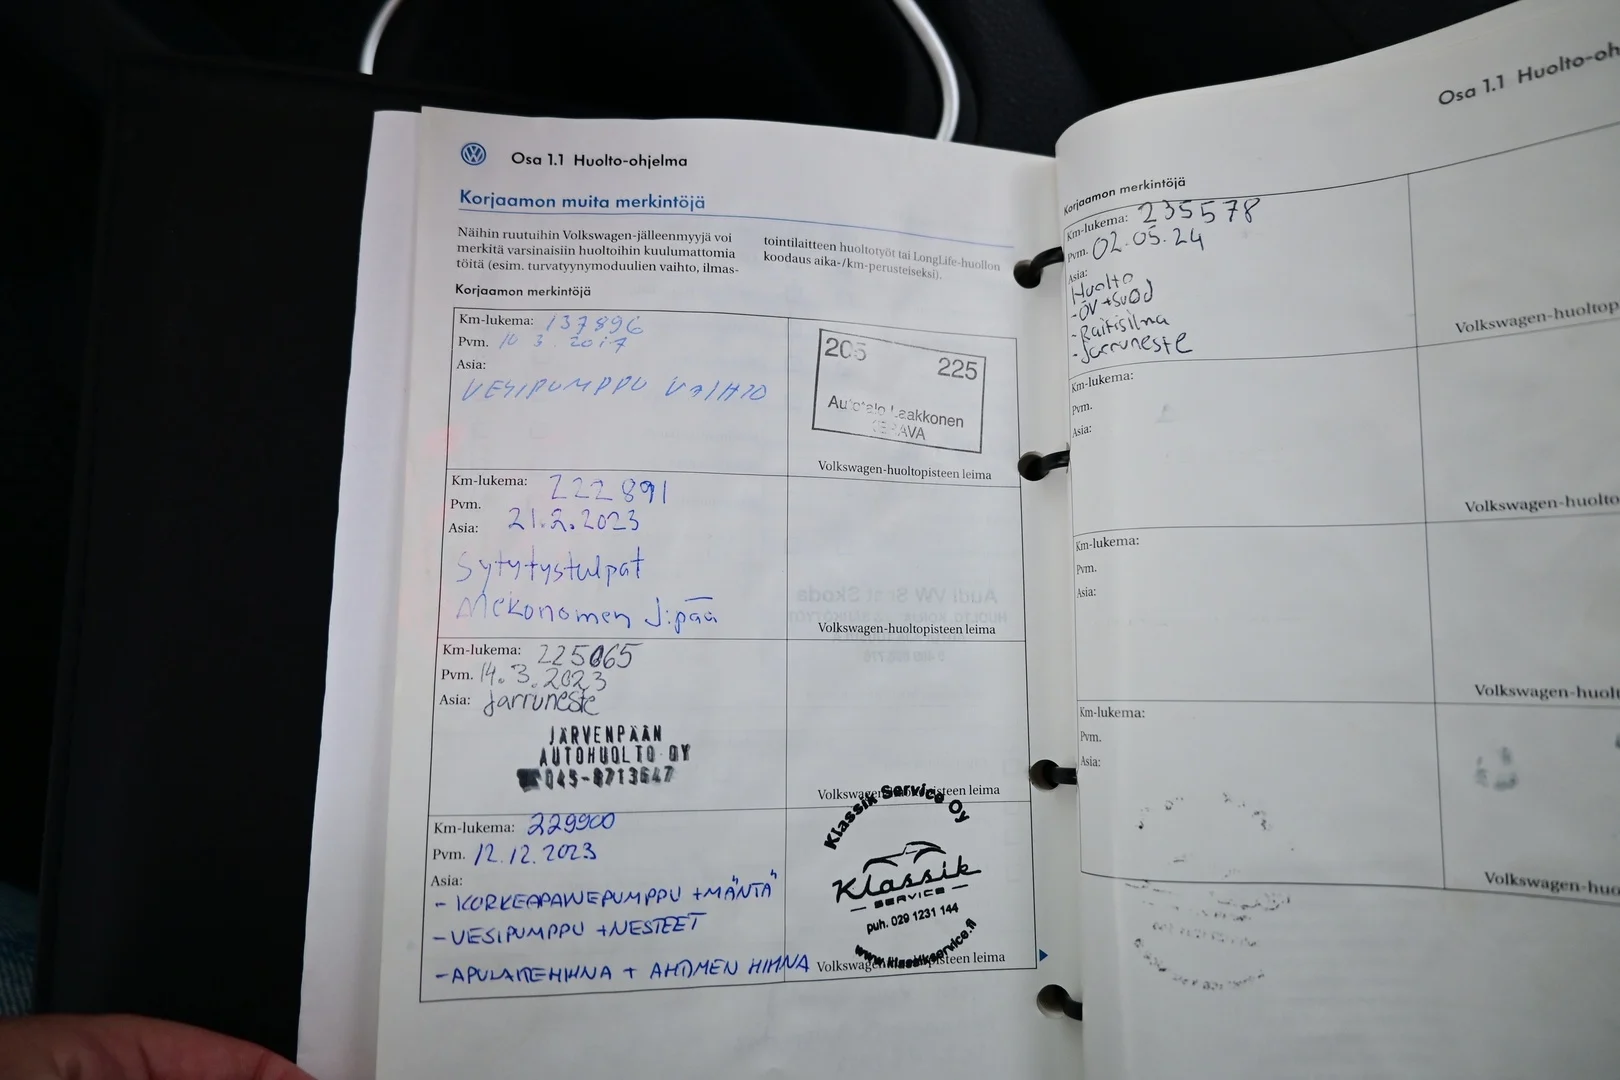 Osa 1.1 Huolto-ohjelma
Korjaamon muita merkintöjä
Näihin ruutuihin Volkswagen-jälleenmyyjä voi
merkitä varsinaisiin huoltoihin kuulumattomia
töitä (esim. turvatyynymoduulien vaihto, ilmas-
tointilaitteen huoltotyöt tai LongLife-huollon
koodaus aika-/km-perusteiseksi).
Korjaamon merkintöjä
Km-lukema: 137896
Pvm. 10 3. 2017
Asia:
VESIPUMPPU VAIHTO
205 225
Autotalo Laakkonen
KERAVA
Volkswagen-huoltopisteen leima
Km-lukema: 222 891
Pvm.
Asia: 21.2.2023
Sytytystulpat
Mekonomen J:pää
Volkswagen-huoltopisteen leima
Km-lukema: 225065
Pvm. 14.3.2023
Asia: Jarruneste
JÄRVENPÄÄN
AUTOHUOLTO OY
045-8713647
Volkswagen-huoltopisteen leima
Km-lukema: 229900
Pvm. 12.12.2023
Asia:
- KORKEAPAINEPUMPPU + "MÄNTÄ"
- VESIPUMPPU + NESTEET
- APULAITEHIHNA + AHTIMEN HIHNA
Klassik Service Oy
Klassik
SERVICE
puh. 029 1231 144
www.klassikservice.fi
Volkswagen-huoltopisteen leima
Osa 1.1 Huolto-oh
Korjaamon merkintöjä
Km-lukema: 235578
Pvm. 02.05.24
Asia:
Huolto
- ÖV + suod
- Raitisilma
- Jarruneste
Volkswagen-huoltop
Km-lukema:
Pvm.
Asia:
Volkswagen-huolto
Km-lukema:
Pvm.
Asia:
Volkswagen-huolt
Km-lukema:
Pvm.
Asia:
Volkswagen-huo